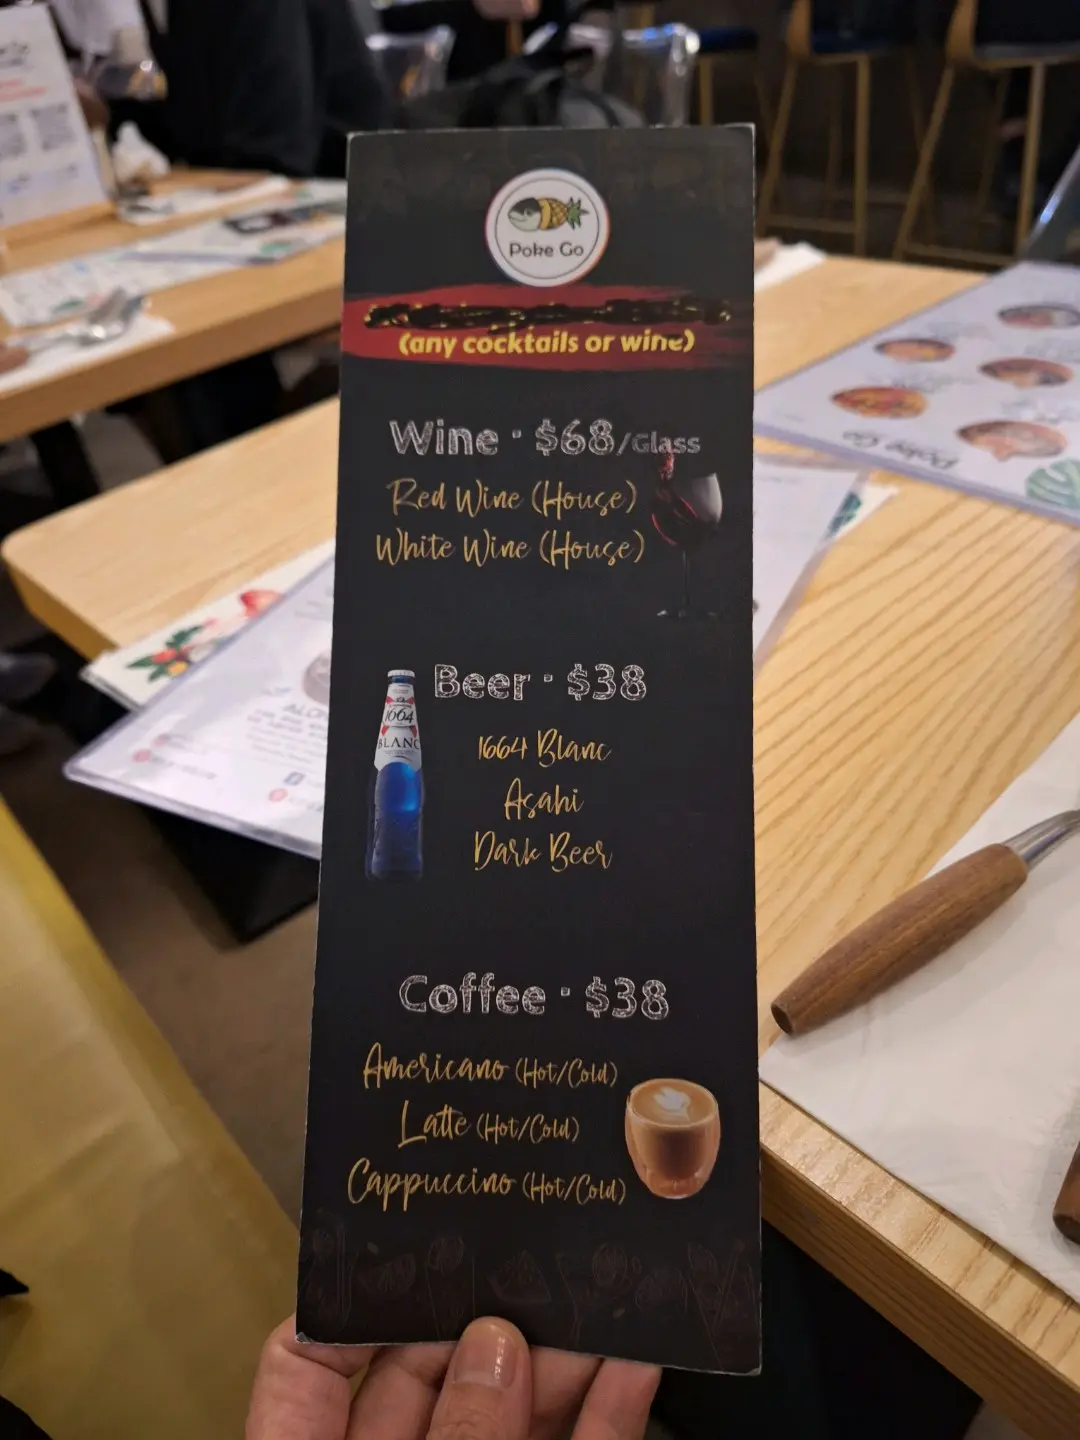 Poke Go
(any cocktails or wine)
Wine · $68/Glass
Red Wine (House)
White Wine (House)
Beer · $38
1664
BLANC
1664 Blanc
Asahi
Dark Beer
Coffee · $38
Americano (Hot/Cold)
Latte (Hot/Cold)
Cappuccino (Hot/Cold)
Poke Go